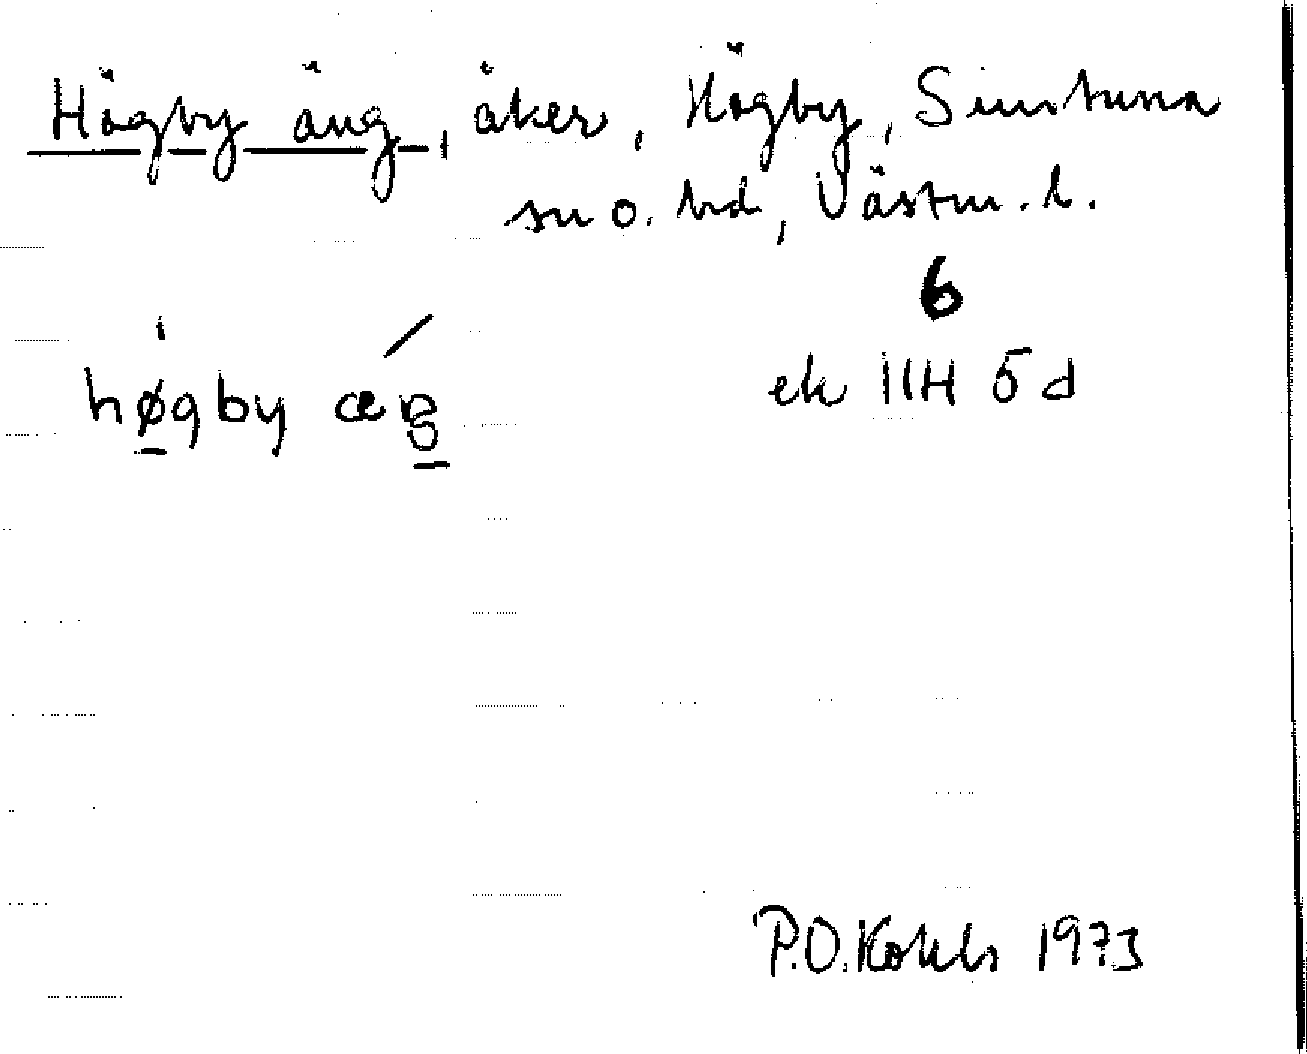 Högby äng, åker, Högby, Simtuna
sn o. hd, Västm. l.
6
ek 11H 5d
høgby
P.O. Kohls 1973